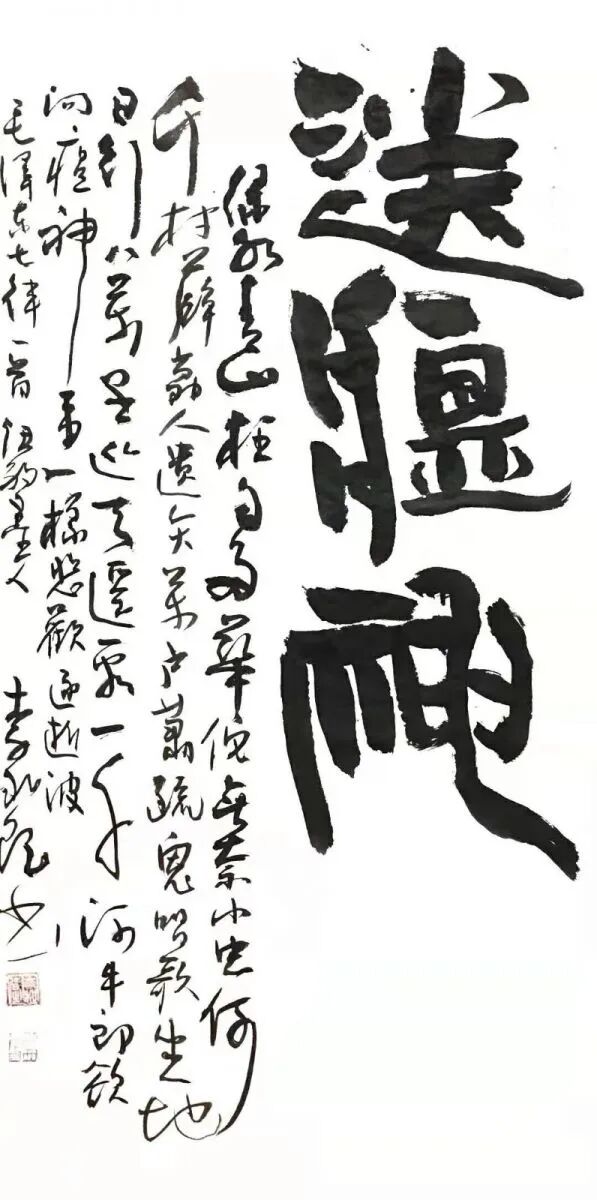 送瘟神
绿水青山枉自多華佗無奈小虫何
千村薜荔人遗矢萬户萧疏鬼唱歌坐地
日行八萬里巡天遥看一千河牛郎欲
问瘟神事一樣悲歡逐逝波
毛澤东七律一首 李 书